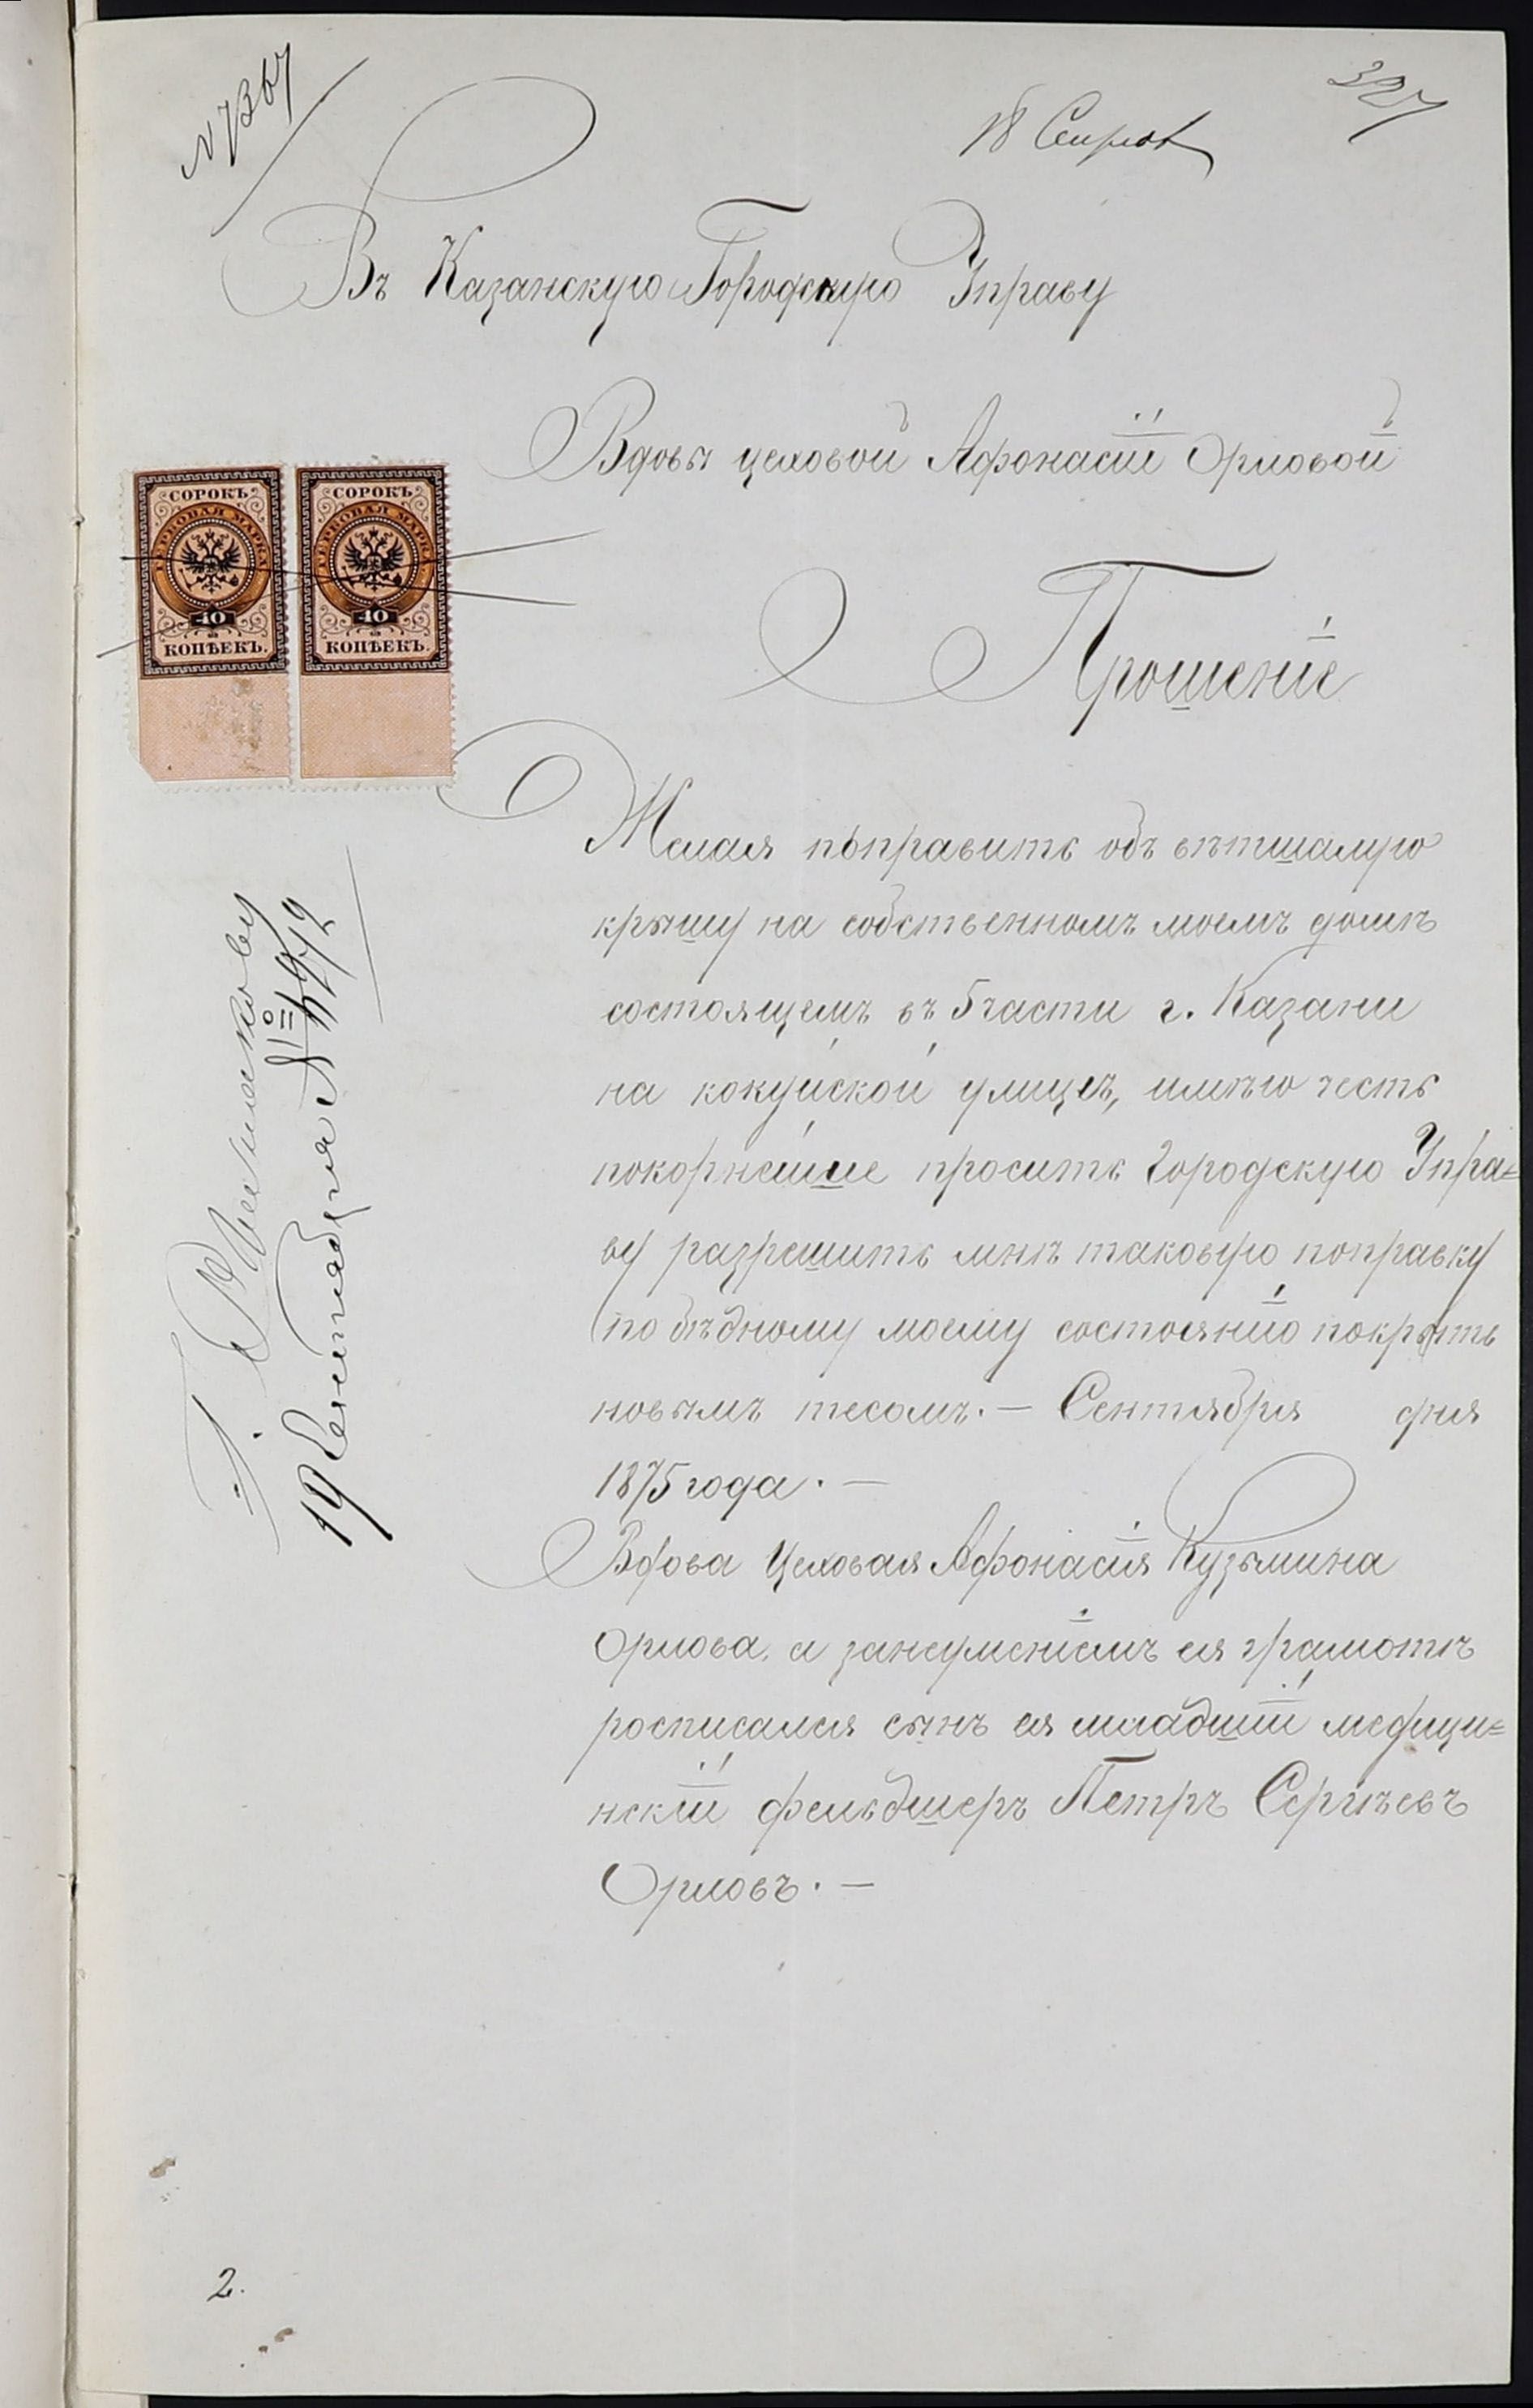 № 7367
327
18 Сентяб
Въ Казанскую Городскую Управу
Вдовы цеховой Афонасіи Орловой
СОРОКЪ
ГЕРБОВАЯ МАРКА
40
КОПѢЕКЪ.
СОРОКЪ
ГЕРБОВАЯ МАРКА
40
КОПѢЕКЪ.
Прошеніе
Желая поправить объ вѣтшалую
крышу на собственномъ моемъ домѣ
состоящемъ въ 5 части г. Казани
на кокуйской улицѣ, имѣю честь
покорнейше просить Городскую Упра=
ву разрешить мнѣ таковую поправку
по бѣдному моему состоянію покрыть
новымъ тесомъ. — Сентября дня
1875 года. —
Вдова Цеховая Афонасія Кузьмина
Орлова, а занеуменіемъ ея грамотѣ
росписался сынъ ея младшій медици=
нскій фельдшеръ Петръ Сергѣевъ
Орловъ. —
19 Сентября №
2.